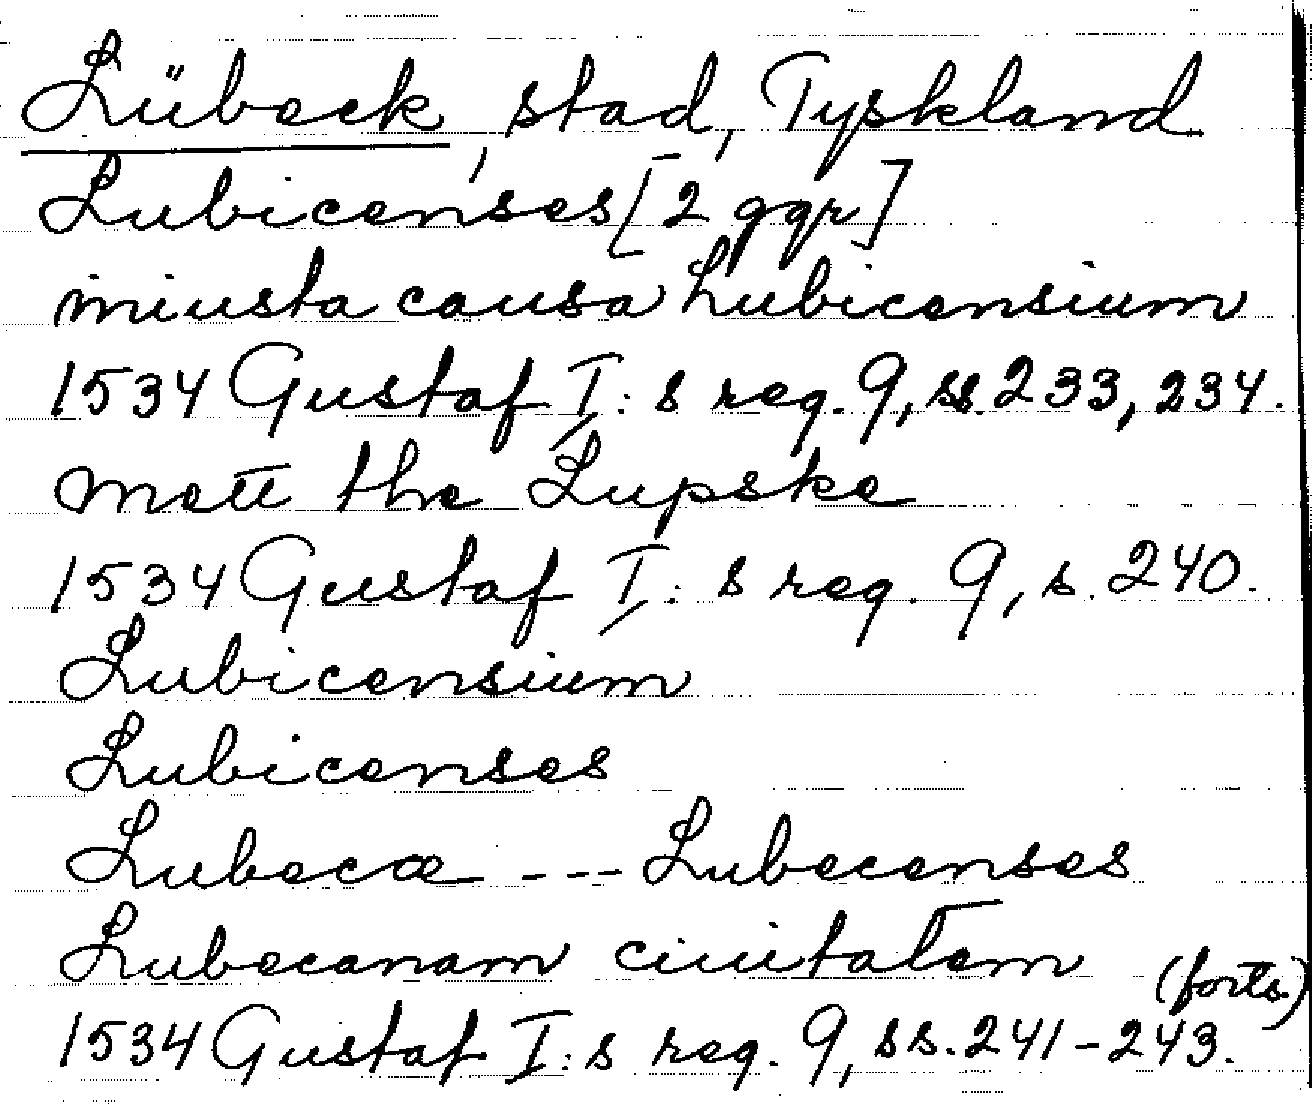 Lübeck, stad, Tyskland
Lubicenses [2 ggr]
iniusta causa Lubicensium
1534 Gustaf I:s reg. 9, ss. 233, 234.
mett the Lupske
1534 Gustaf I:s reg. 9, s. 240.
Lubicensium
Lubicenses
Lubecæ --- Lubecenses
Lubecanam ciuitatem
(forts.)
1534 Gustaf I:s reg. 9, ss. 241-243.